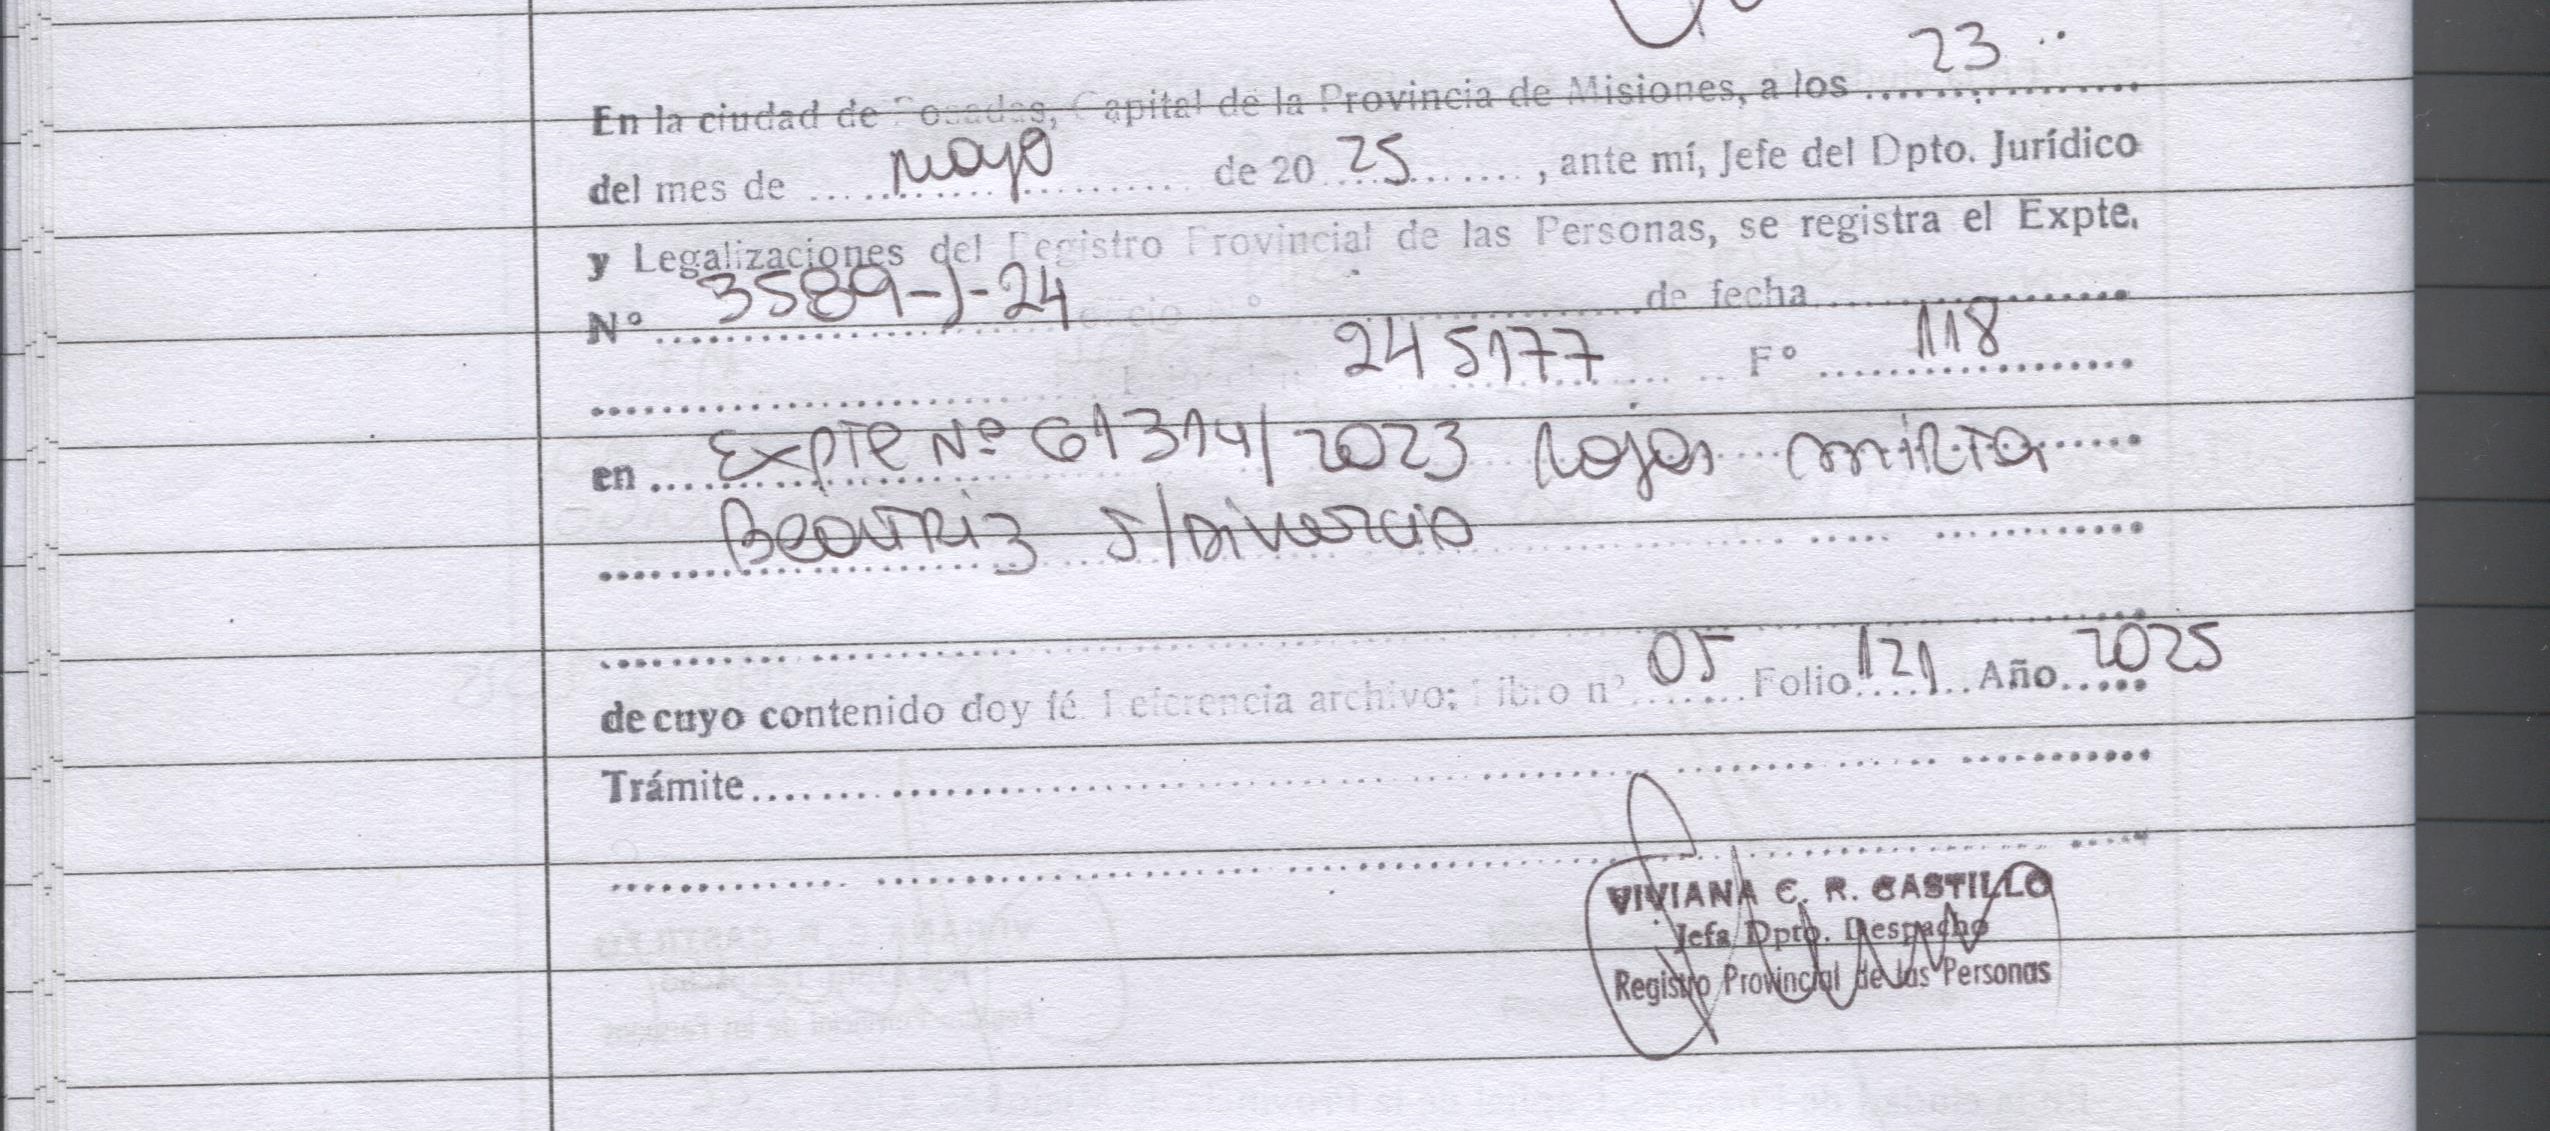 En la ciudad de Posadas, Capital de la Provincia de Misiones, a los 23
del mes de mayo de 20 25, ante mí, Jefe del Dpto. Jurídico
y Legalizaciones del Registro Provincial de las Personas, se registra el Expte.
Nº 3589-J-24 de fecha
245177 Fº 118
en Expte Nº 61314/2023 Rojas Mirta
Beatriz s/Divorcio
de cuyo contenido doy fé. Referencia archivo: Libro nº 05 Folio 121 Año 2025
Trámite
VIVIANA C. R. CASTILLO
Jefa Dpto. Despacho
Registro Provincial de las Personas